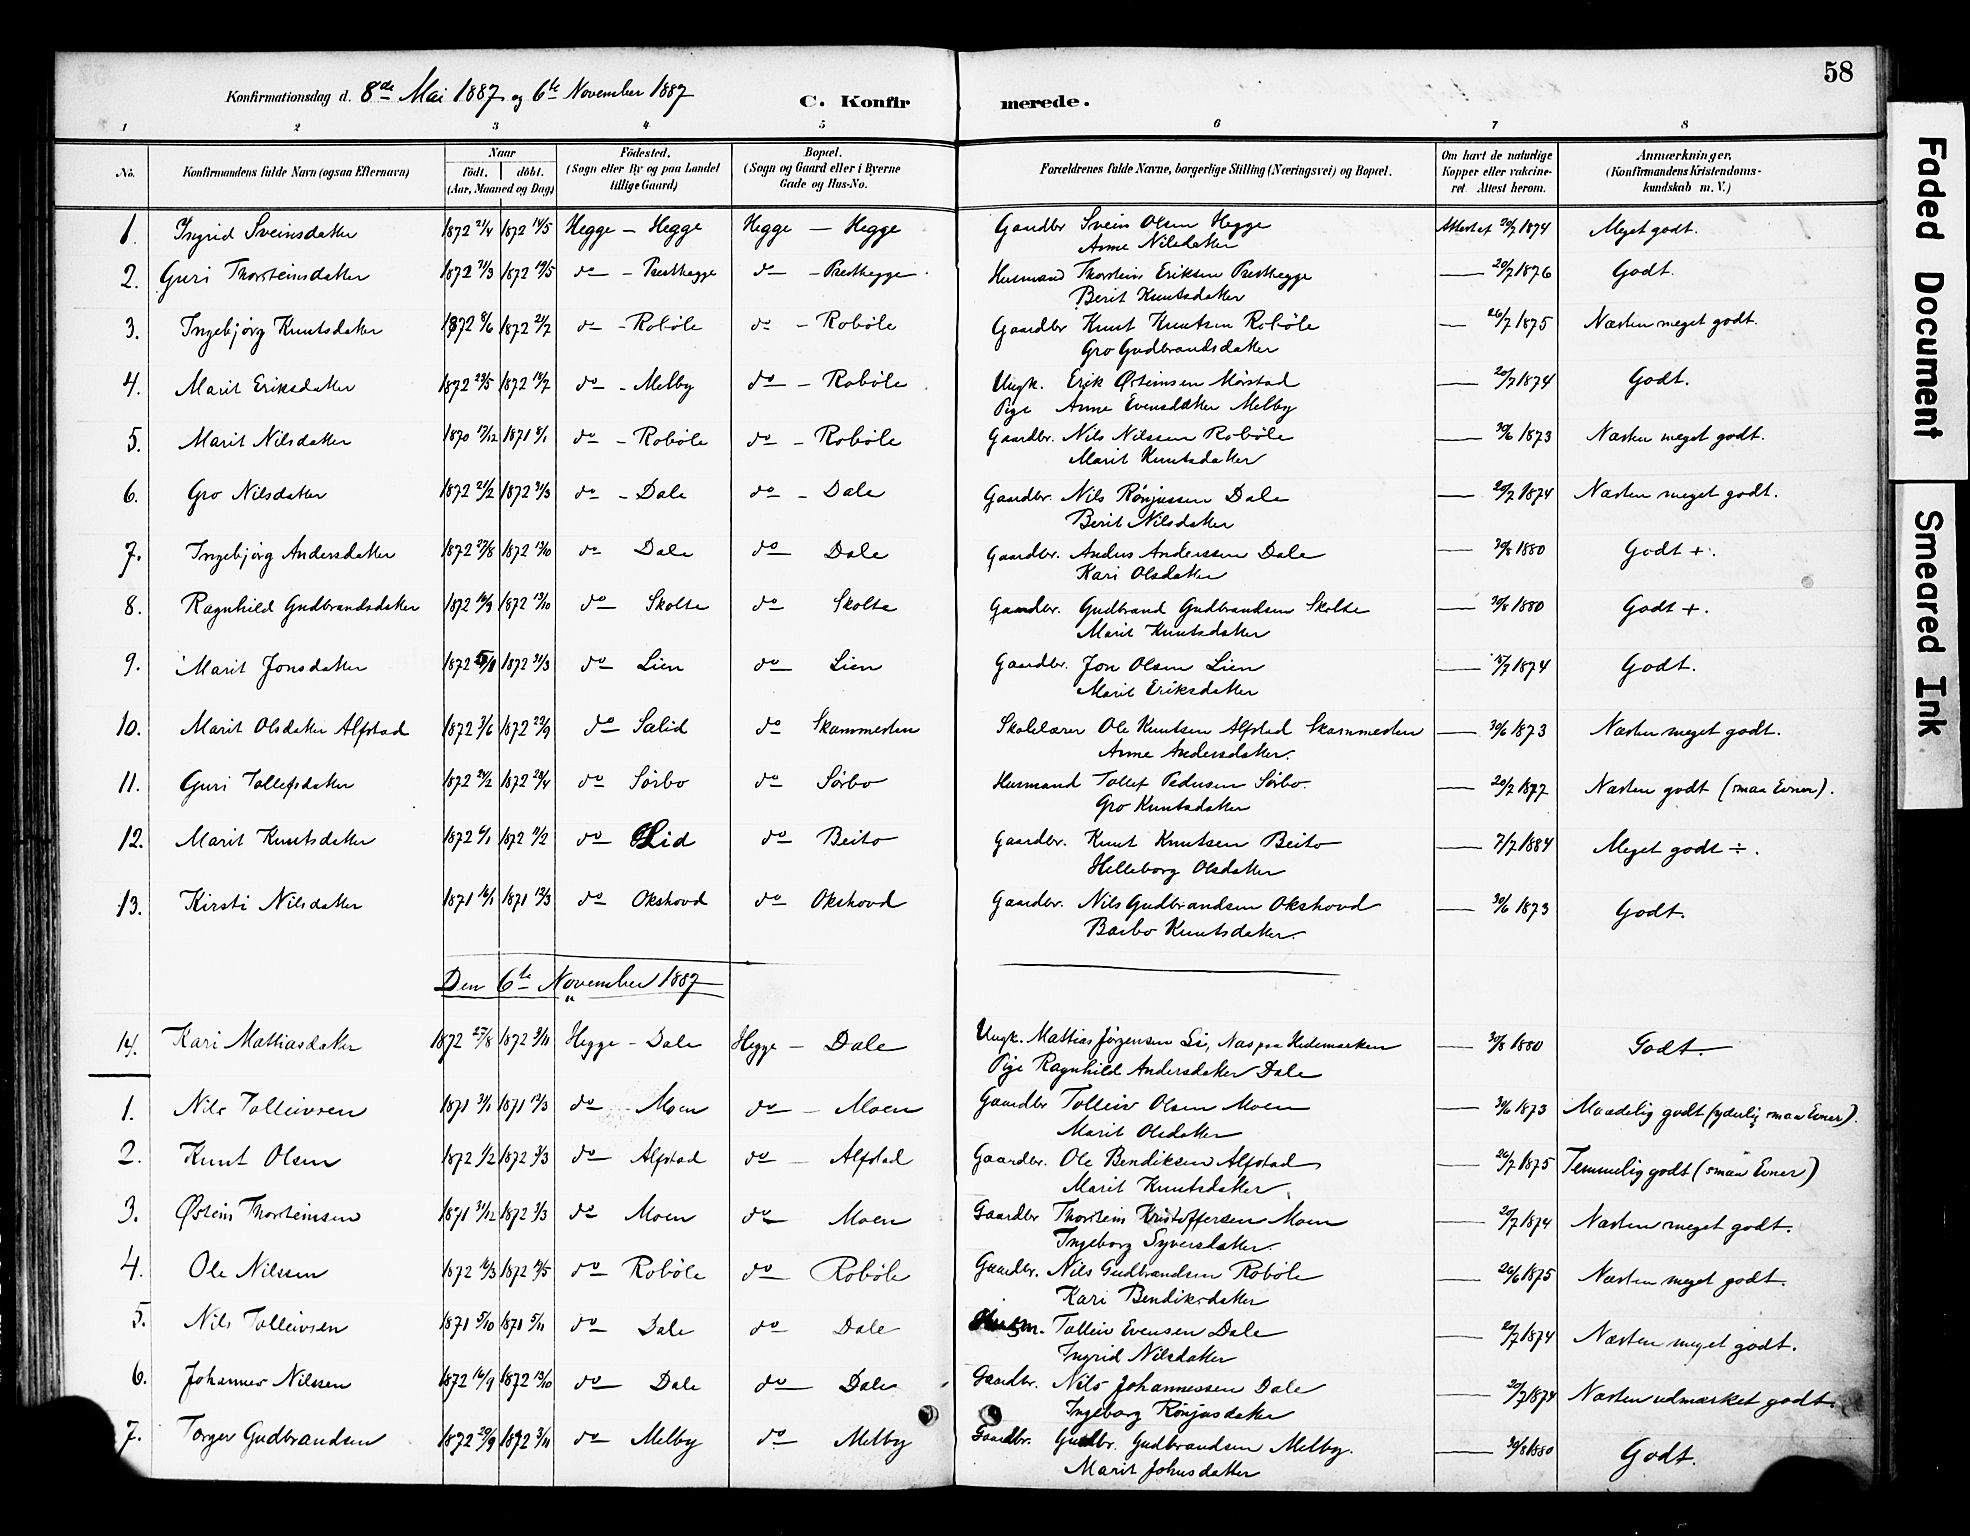 58
Konfirmationsdag d. 8de Mai 1887 og 6te November 1887 C. Konfirmerede.
1 2 3 4. 5 6 7 8
No. Konfirmandens fulde Navn (ogsaa Efternavn) Naar Født. døbt. (Aar, Maaned og Dag) Fødested. (Sogn eller By og paa Landet tillige Gaard) Bopæl. (Sogn og Gaard eller i Byerne Gade og Hus-No. Forældrenes fulde Navne, borgerlige Stilling (Næringsvei) og Bopæl. Om havt de naturlige Kopper eller vakcineret. Attest herom. Anmærkninger. (Konfirmandens Kristendomskundskab m. V.)
1. Ingrid Sveinsdatter 1872 21/4 1872 14/5 Hegge — Hegge Hegge — Hegge Gaardbr Svein Olsen Hegge Attest af 20/7 1874 Meget godt.
Anne Nilsdatter
2. Guri Thorsteinsdatter 1872 21/3 1872 19/5 do - Presthegge do - Presthegge Husmand Thorstein Eriksen Presthegge — 20/7 1876 Godt.
Berit Knutsdatter
3. Ingebjørg Knutsdatter 1872 8/6 1872 21/7 do - Robøle do - Robøle Gaardbr Knut Knutsen Robøle — 26/7 1875 Næsten meget godt.
Gro Gudbrandsdatter
4. Marit Eriksdatter 1872 29/5 1872 14/7 do - Melby do - Robøle Ungk. Erik Østeinsen Mørstad — 20/7 1874 Godt.
Pige Anne Evensdatter Melby
5. Marit Nilsdatter 1870 17/12 1871 8/1 do - Robøle do - Robøle Gaardbr. Nils Nilssen Robøle — 30/6 1873 Næsten meget godt.
Marit Knutsdatter
6. Gro Nilsdatter 1872 21/2 1872 31/3 do - Dale do - Dale Gaardbr. Nils Rønjussen Dale — 20/7 1874 Næsten meget godt.
Berit Nilsdatter
7. Ingebjørg Andersdatter 1872 27/8 1872 13/10 do Dale do Dale Gaardbr. Anders Anderssen Dale — 30/8 1880 Godt +.
Kari Olsdatter
8. Ragnhild Gudbrandsdatter 1872 16/9 1872 13/10 do Skolte do Skolte Gaardbr. Gudbrand Gudbrandsen Skolte — 30/8 1880 Godt +.
Marit Knutsdatter
9. Marit Jonsdatter 1872 1872 31/3 do Lien do Lien Gaardbr. Jon Olsen Lien — 1874 Godt.
Marit Eriksdatter
10. Marit Olsdatter Alfstad 1872 3/6 1872 29/9 do Sælid do Skammesten Skolelærer Ole Knutsen Alfstad Skammesten — 30/6 1873 Næsten meget godt.
Anne Andersdatter.
11. Guri Tollefsdatter 1872 24/2 1872 28/4 do Sørbo do Sørbo Husmand Tollef Pedersen Sørbo. — 20/7 1877 Næsten godt (smaa Evner).
Gro Knutsdatter
12. Marit Knutsdatter 1872 6/1 1872 11/2 do Lid do Beito Gaardbr. Knut Knutsen Beito — 7/7 1884 Meget godt ÷.
Helleborg Olsdatter
13. Kirsti Nilsdatter 1871 16/1 1871 12/3 do Okshovd do Okshovd Gaardbr. Nils Gudbrandsen Okshovd — 30/6 1873 Godt.
Barbo Knutsdatter.
Den 6te November 1887
14. Kari Mathiasdatter 1872 27/8 1872 3/11 Hegge - Dale Hegge - Dale Ungk. Mathias Jørgensen Li, Næs paa Hedemarken — 30/8 1880 Godt.
Pige Ragnhild Andersdatter Dale
1. Nils Tolleivsen 1871 31/1 1871 12/3 do - Moen do - Moen Gaardbr Tolleiv Olsen Moen — 30/6 1873 Maadelig godt (yderlig smaa Evner).
Marit Olsdatter
2. Knut Olsen 1872 1/2 1872 3/3 do Alfstad do - Alfstad Gaardbr. Ole Bendiksen Alfstad — 26/7 1875 Temmelig godt (smaa Evner)
Marit Knutsdatter.
3. Østein Thorsteinsen 1871 31/12 1872 3/3 do Moen do Moen Gaardbr Thorstein Kristoffersen Moen — 20/7 1874 Næsten meget godt.
Ingeborg Syversdatter.
4. Ole Nilssen 1872 16/3 1872 19/5 do Robøle do Robøle Gaardbr. Nils Gudbrandsen Robøle — 26/6 1875 Næsten meget godt.
Kari Bendiksdatter
5. Nils Tolleivsen 1871 5/10 1871 5/11 do Dale do Dale Husm. Tolleiv Evensen Dale — 20/7 1874 Næsten meget godt.
Ingrid Nilsdatter
6. Johannes Nilssen 1872 16/9 1872 13/10 do Dale do Dale Gaardbr. Nils Johannessen Dale — 20/7 1874 Næsten udmærket godt.
Ingeborg Rønjusdatter
7. Torger Gudbrandsen 1872 20/9 1872 3/11 do Melby do Melby Gaardbr. Gudbr. Gudbrandsen Melby. — 30/8 1880 Godt.
Marit Johnsdatter
Faded Document
Smeared Ink